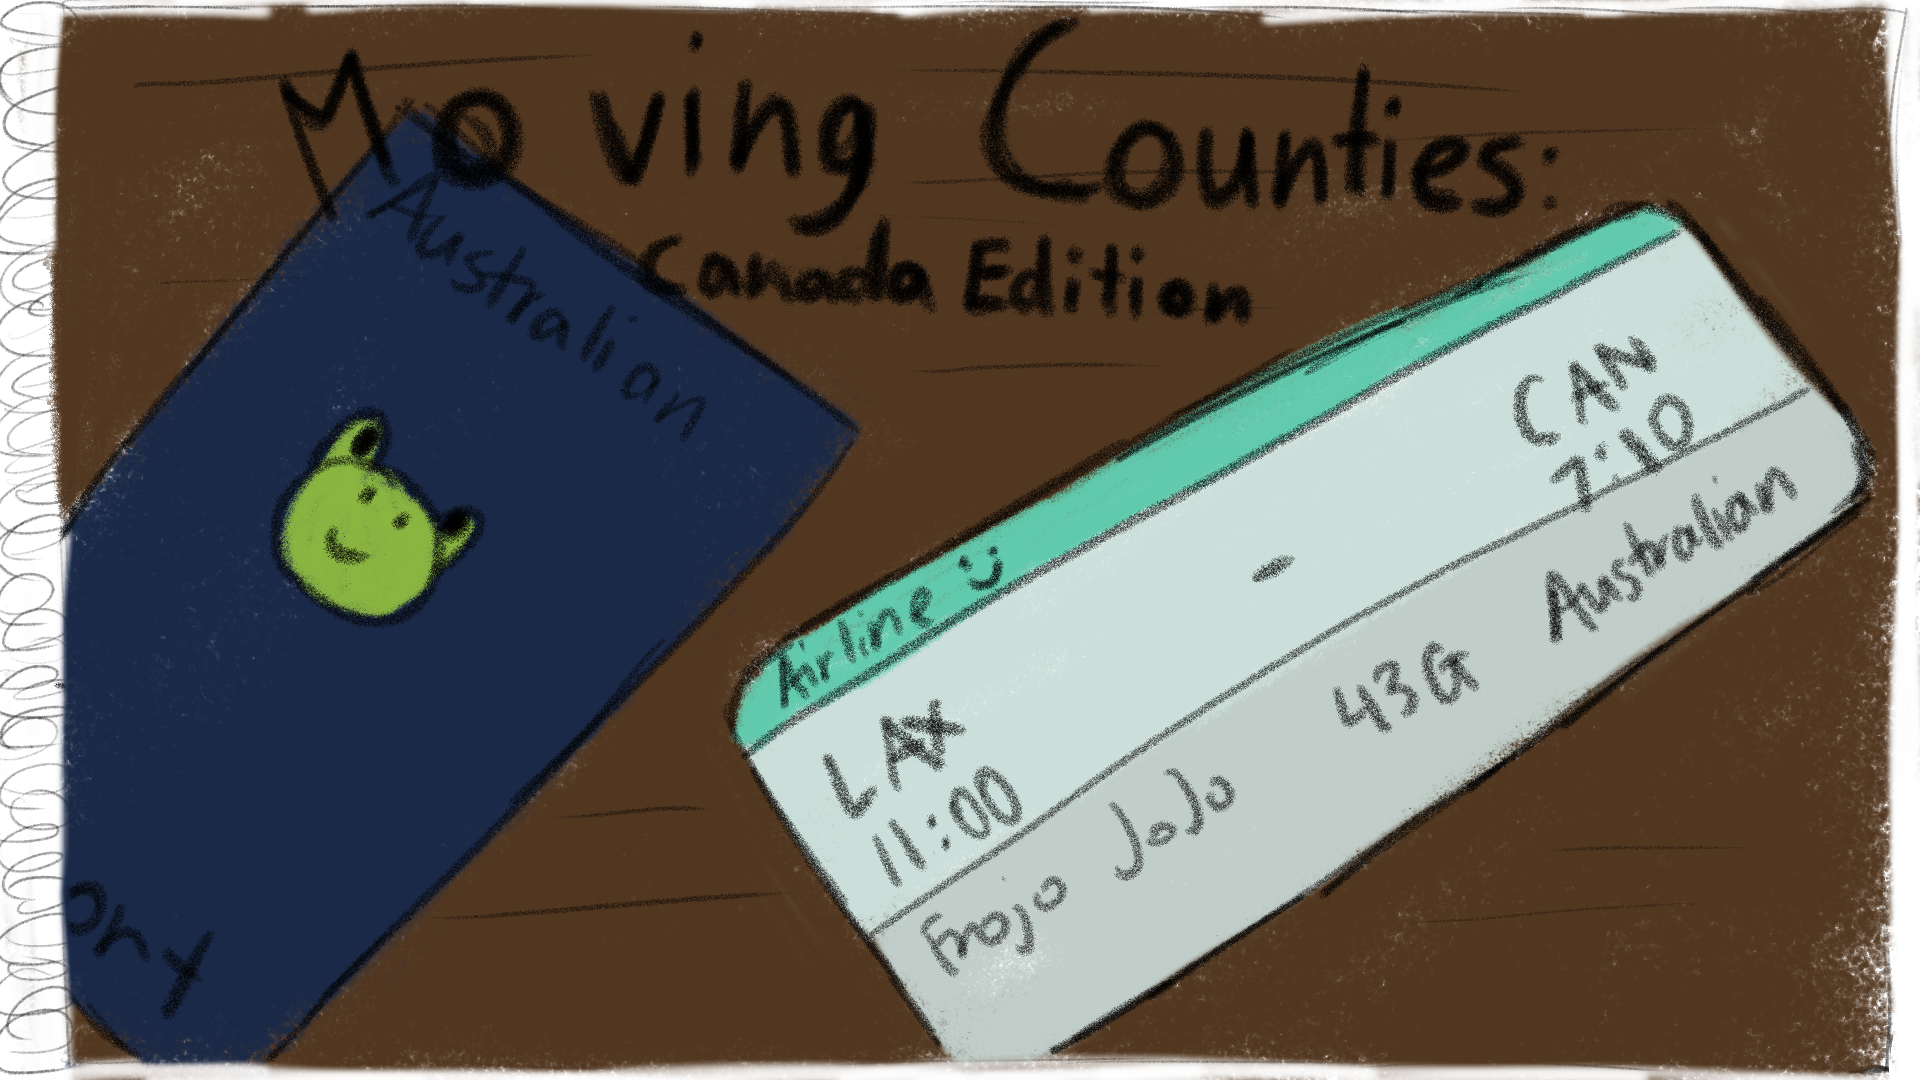 Moving Counties:
Canada Edition
Australian
Airline
LAX
11:00
-
CAN
7:10
Frojo JoJo
43G
Australian